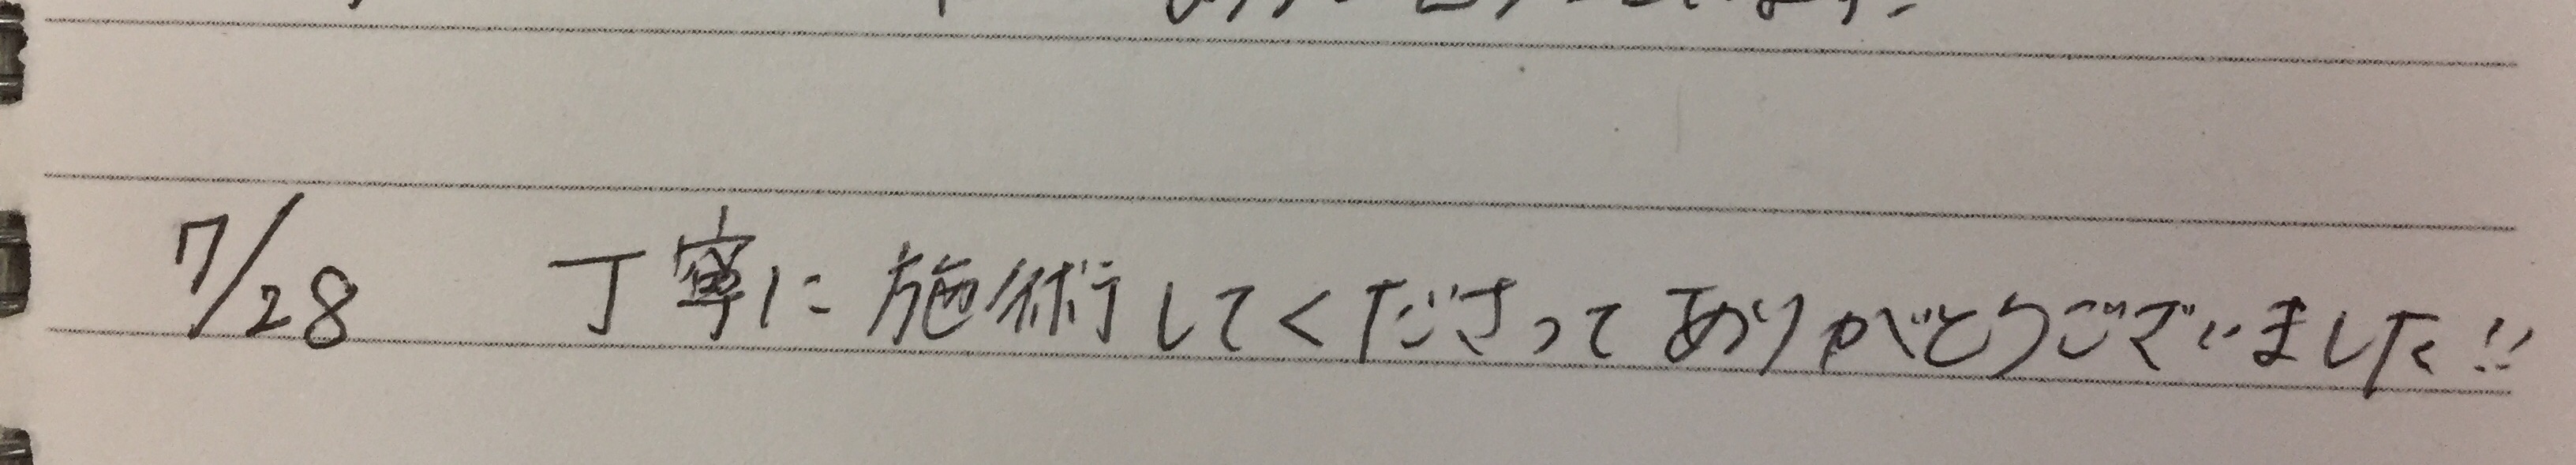 ます。
7/28 丁寧に施術してくださってありがとうございました!!